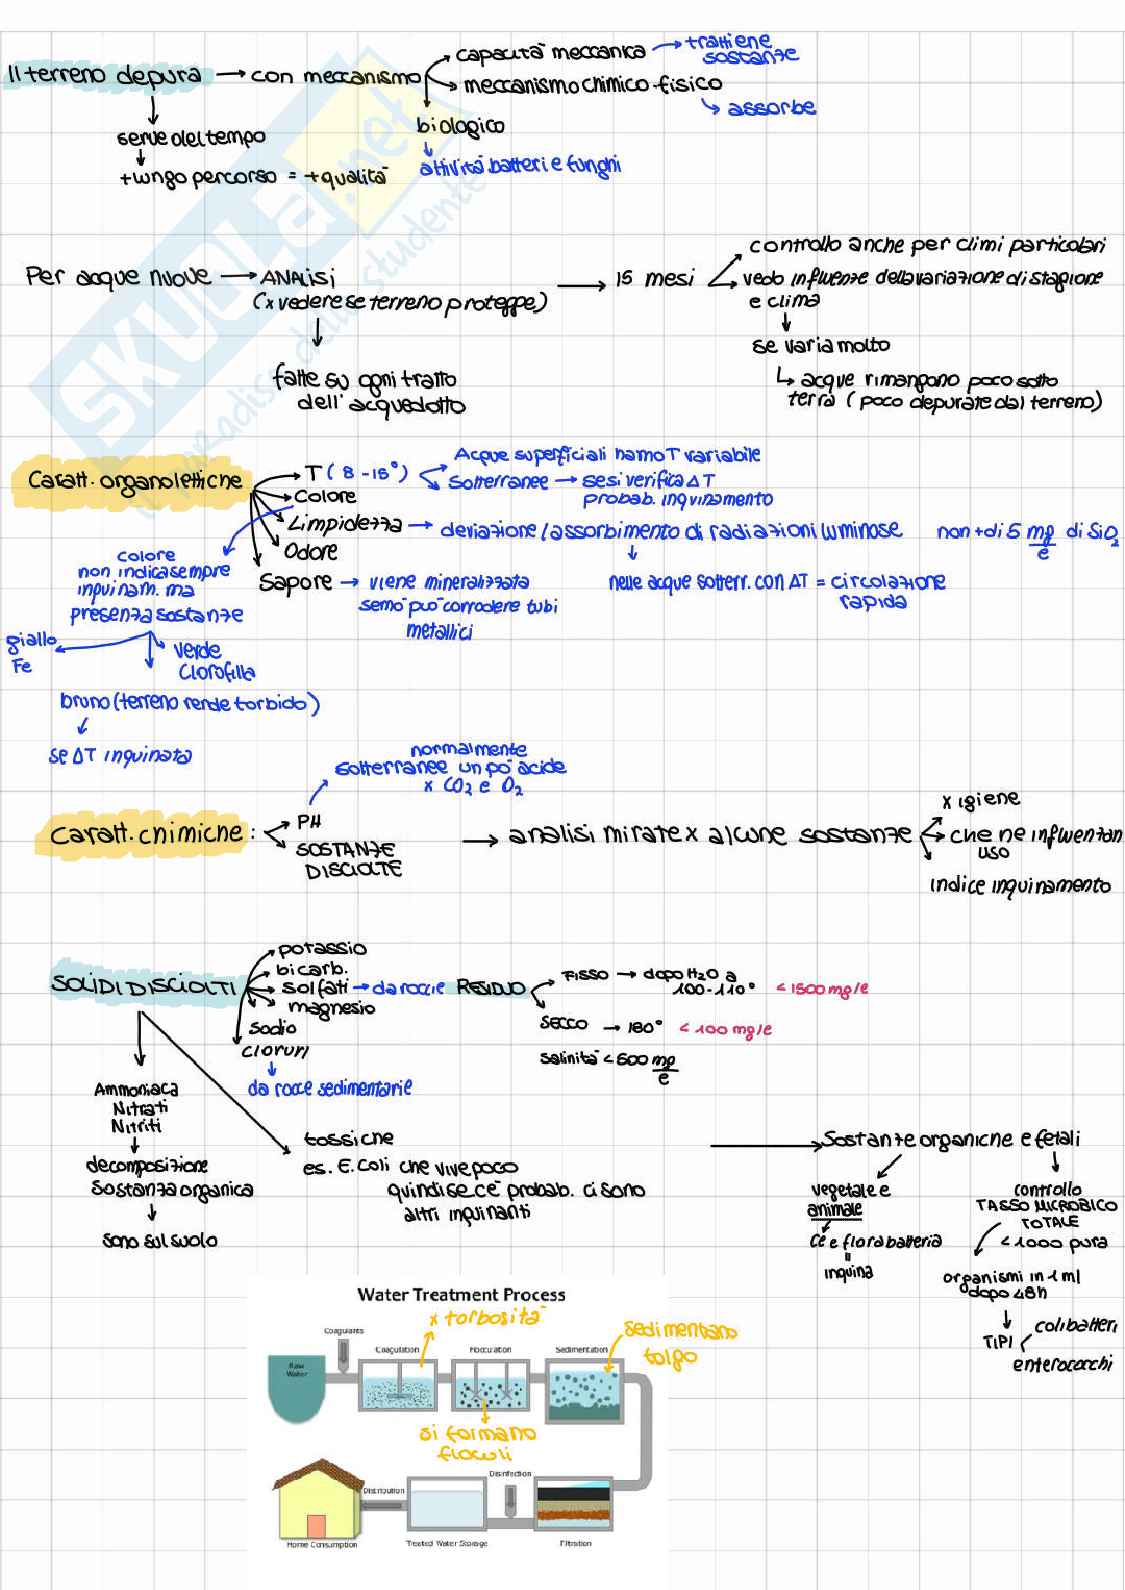 Il terreno depura → con meccanismo
capacità meccanica → trattiene sostanze
meccanismo chimico-fisico
↳ assorbe
biologico
↓
attività batteri e funghi
serve del tempo
+ lungo percorso = + qualità
SKUOLA.net
il paradiso dello studente
Per acque nuove → ANALISI
(x vedere se terreno protegge)
fatte su ogni tratto
dell'acquedotto
→ 15 mesi
controllo anche per climi particolari
vedo influenze della variazione di stagione
e clima
se varia molto
↳ acque rimangono poco sotto
terra (poco depurate dal terreno)
Caratt. organolettiche
T (8-15°)
Acque superficiali hanno T variabile
Sotterranee → se si verifica ΔT
probab. inquinamento
Colore
Limpidezza → deviazione/assorbimento di radiazioni luminose
non + di 5 mg/l di SiO2
nelle acque sotterr. con ΔT = circolazione
rapida
Odore
Sapore → viene mineralizzata
se no può corrodere tubi
metallici
colore
non indica sempre
inquinam. ma
presenza sostanze
giallo
Fe
verde
Clorofilla
bruno (terreno rende torbido)
se ΔT inquinata
Caratt. chimiche:
PH
normalmente
sotterranee un pò acide
x CO2 e O2
SOSTANZE
DISCIOLTE
→ analisi mirate x alcune sostanze
x igiene
che ne influenzan
uso
indice inquinamento
SOLIDI DISCIOLTI
potassio
bicarb.
solfati → da rocce
magnesio
sodio
cloruri
da rocce sedimentarie
RESIDUO
FISSO → dopo H2O a
100-110° < 1500 mg/l
SECCO → 180° < 100 mg/l
salinità < 500 mg/l
Ammoniaca
Nitrati
Nitriti
decomposizione
sostanza organica
sono sul suolo
tossiche
es. E. Coli che vive poco
quindi se c'è probab. ci sono
altri inquinanti
Sostanze organiche e fetali
vegetale e
animale
c'è e flora batteria
inquina
controllo
TASSO MICROBICO
TOTALE
< 1000 pura
organismi in 1 ml
dopo 48h
TIPI
colibatteri
enterococchi
Water Treatment Process
x torbosità
Coagulants
Raw
Water
Coagulation
Flocculation
Sedimentation
sedimentano
tolgo
si formano
flocculi
Disinfection
Distribution
Home Consumption
Treated Water Storage
Filtration